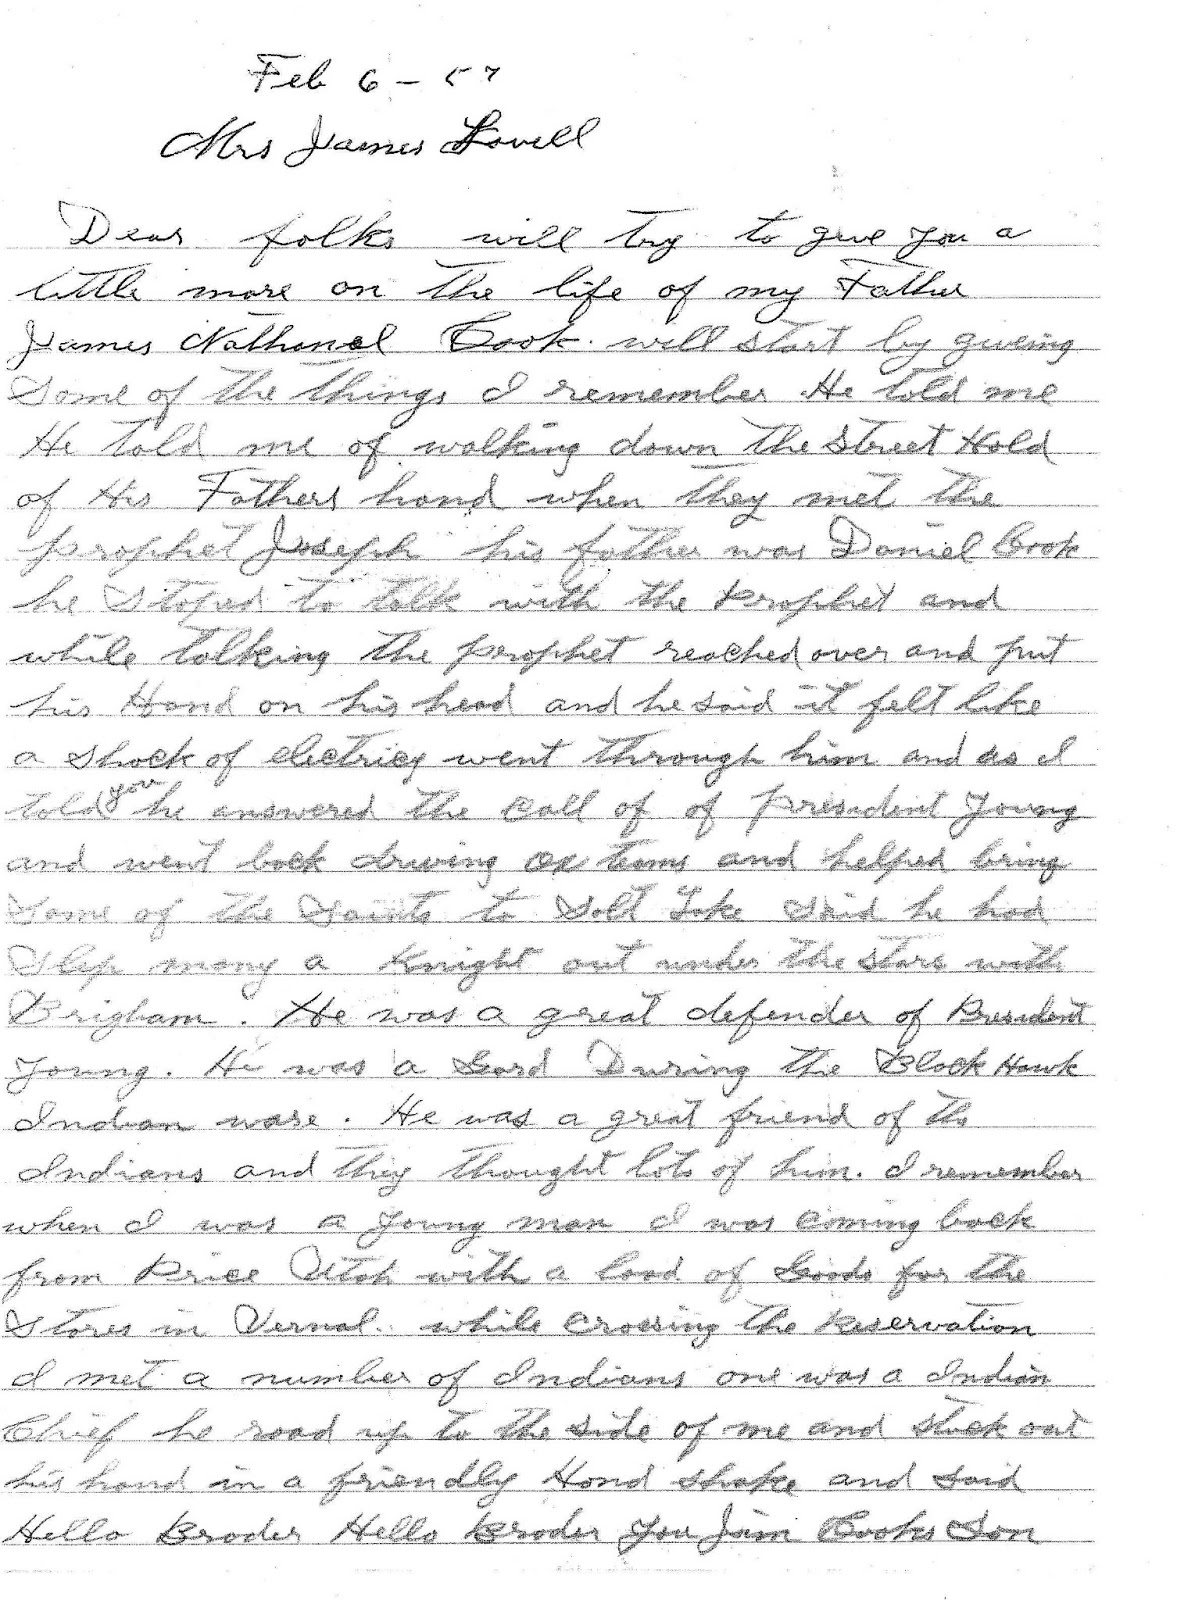 Feb 6 - 57
Mrs James Lovell
Dear folks will try to give you a
little more on the life of my Father
James Nathanel Cook. will start by giveing
Some of the things I remember. He told me
He told me of walking down the street Hold
of His Fathers hand when they met the
prophet Joseph his father was Daniel Cook
he stoped to talk with the Prophet and
while talking the prophet reached over and put
his Hand on his head and he said it felt like
a shock of electricy went through him and as I
told you he answered the call of of President Young
and went back driving ox teams and helped bring
Some of the Saints to Salt Lake said he had
Slep many a Knight out under the stars with
Brigham. He was a great defender of President
Young. He was a Gard During the Black Hawk
Indian ware. He was a great friend of the
Indians and they thought lots of him. I remember
when I was a young man I was coming back
from Price Utah with a load of Goods for the
Stores in Vernal. while crossing the Reservation
I met a number of Indians one was a Indian
Chief he road up to the side of me and stuck out
his hand in a friendly Hand shake and said
Hello Broder Hello Broder you Jim Cooks Son